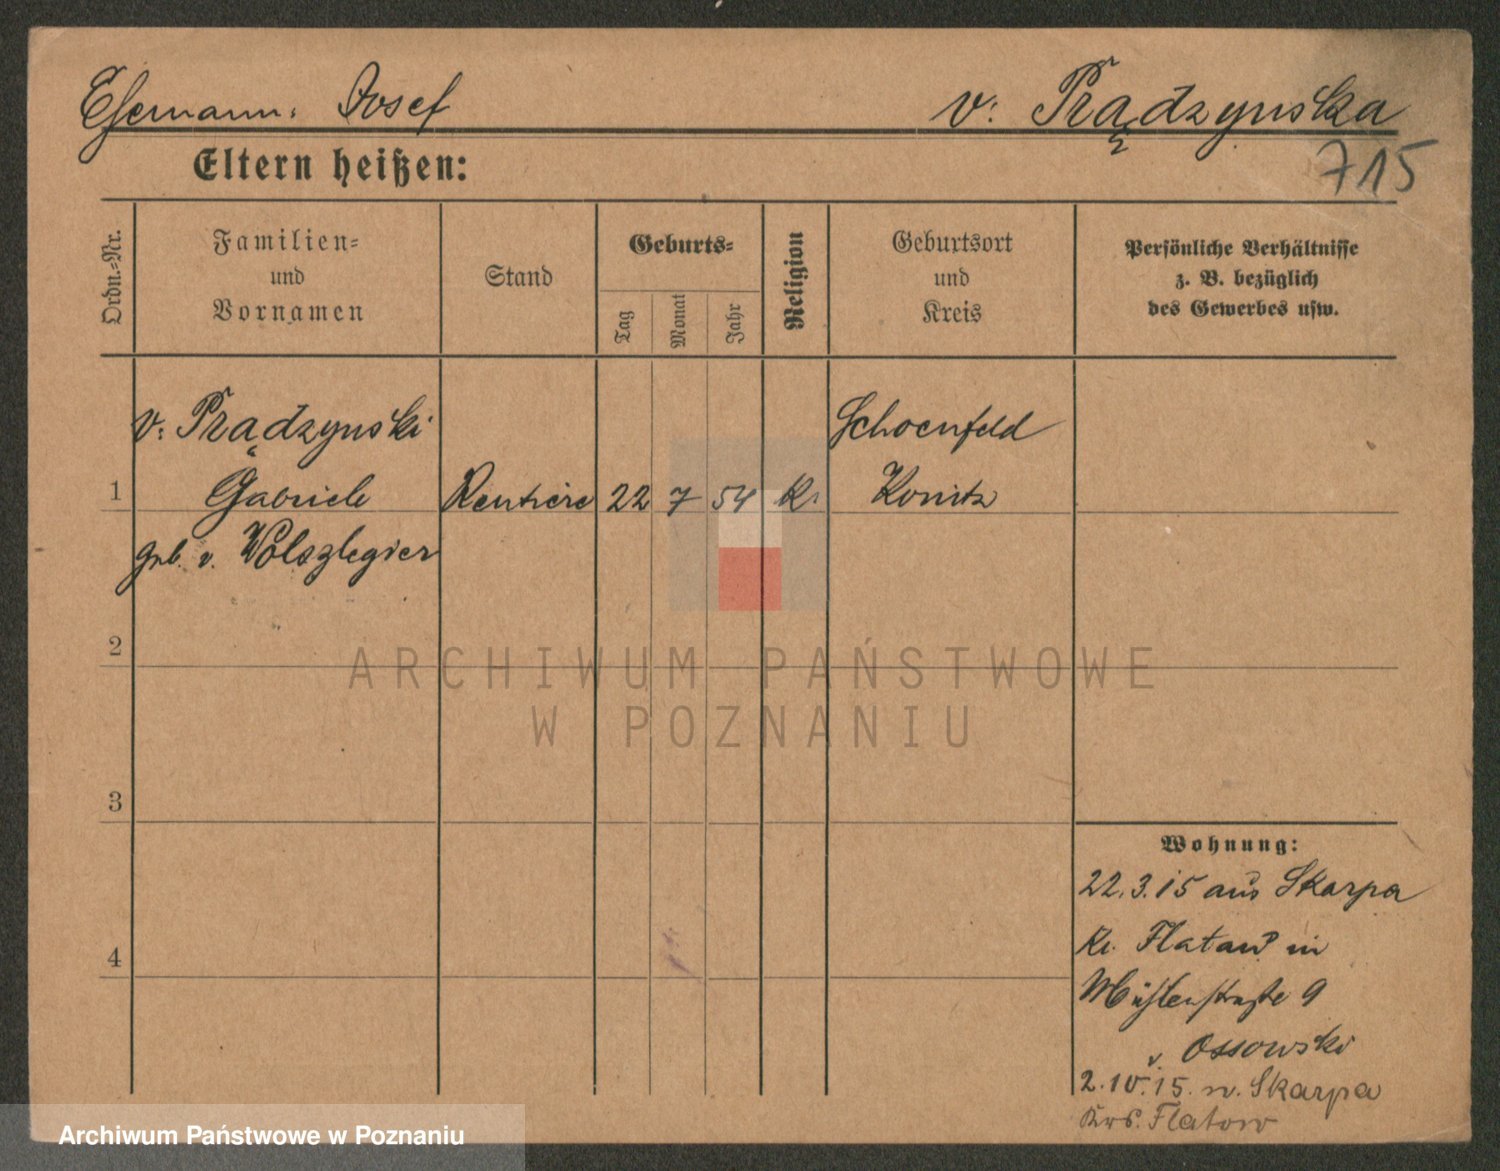 Ehemann: Josef
v: Prądzynska
715
Eltern heißen:
Ordn.-Nr.
Familien-
und
Vornamen
Stand
Geburts-
Tag
Monat
Jahr
Religion
Geburtsort
und
Kreis
Persönliche Verhältnisse
z. B. bezüglich
des Gewerbes usw.
v: Prądzynski
Schoenfeld
1 Gabriele Rentiere 22 7 54 K. Konitz
geb. v. Wolszlegier
2
ARCHIWUM PAŃSTWOWE
W POZNANIU
3
4
Wohnung:
22.3.15 aus Skarpa
Kr. Flatau in
Mühlenstraße 9
v. Ossowski
2.10.15. n. Skarpa
Krs. Flatow
Archiwum Państwowe w Poznaniu